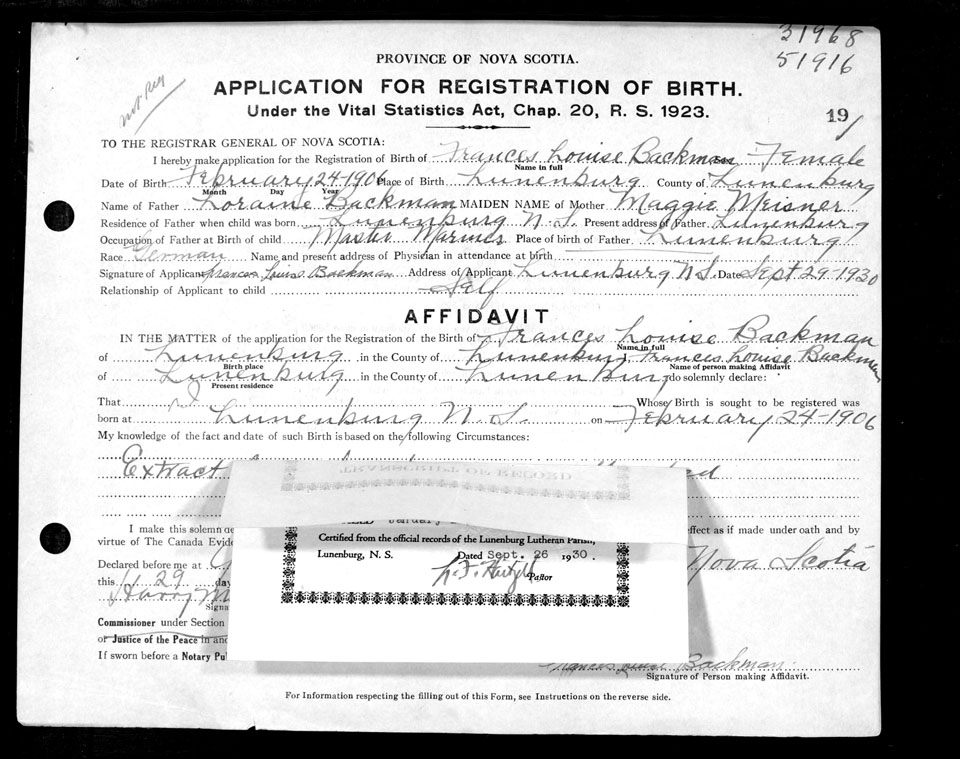 31968
51916
PROVINCE OF NOVA SCOTIA.
not reg
APPLICATION FOR REGISTRATION OF BIRTH.
Under the Vital Statistics Act, Chap. 20, R. S. 1923.
19
TO THE REGISTRAR GENERAL OF NOVA SCOTIA:
I hereby make application for the Registration of Birth of Frances Louise Backman Female
Name in full
Date of Birth February 24-1906 Place of Birth Lunenburg County of Lunenburg
Month Day Year
Name of Father Loraine Backman MAIDEN NAME of Mother Maggie Meisner
Residence of Father when child was born Lunenburg N.S. Present address of Father Lunenburg
Occupation of Father at Birth of child Master Mariner Place of birth of Father Lunenburg
Race German Name and present address of Physician in attendance at birth
Signature of Applicant Frances Louise Backman Address of Applicant Lunenburg N.S. Date Sept 29-1930
Relationship of Applicant to child Self
AFFIDAVIT
IN THE MATTER of the application for the Registration of the Birth of Frances Louise Backman
Name in full
of Lunenburg in the County of Lunenburg, Frances Louise Backman
Birth place Name of person making Affidavit
of Lunenburg in the County of Lunenburg do solemnly declare:
Present residence
That I Whose Birth is sought to be registered was
born at Lunenburg N.S. on February 24-1906
My knowledge of the fact and date of such Birth is based on the following Circumstances:
Extract
TRANSCRIPT OF RECORD
January
I make this solemn de effect as if made under oath and by
Certified from the official records of the Lunenburg Lutheran Parish,
virtue of The Canada Evide
Lunenburg, N. S. Dated Sept. 26 1930.
Declared before me at Nova Scotia
Pastor
this 29 day
Harry M
Signa
Commissioner under Section
or Justice of the Peace in and
If sworn before a Notary Pu
Frances Louise Backman
Signature of Person making Affidavit.
For Information respecting the filling out of this Form, see Instructions on the reverse side.